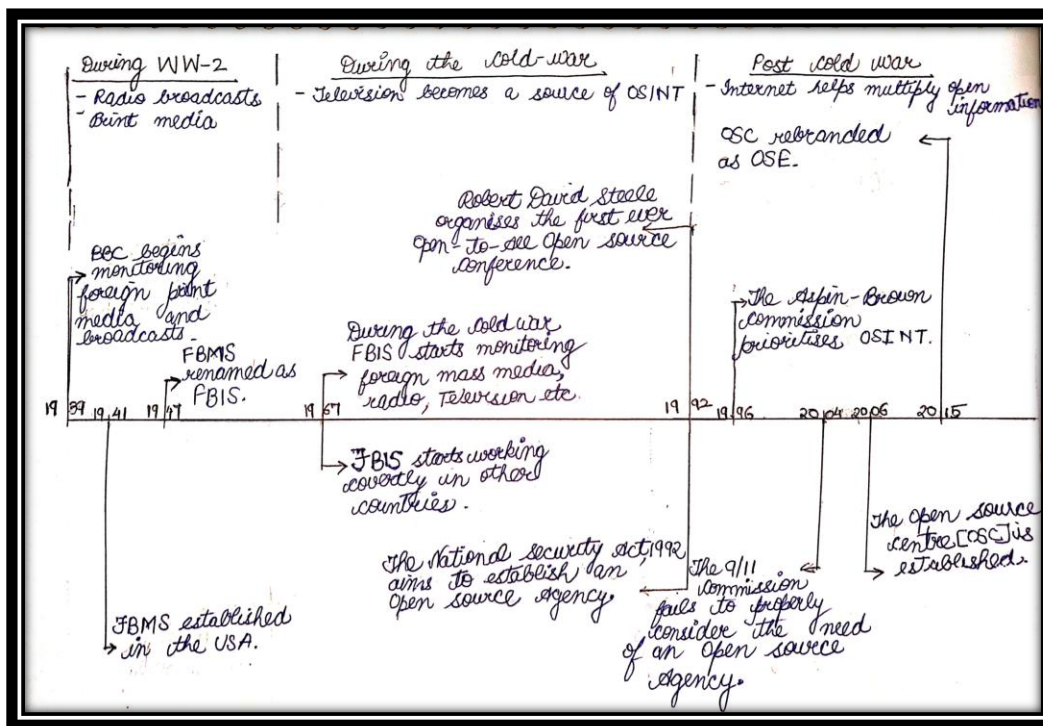 During WW-2
- Radio broadcasts
- Print media
During the cold-war
- Television becomes a source of OSINT
Post cold war
- Internet helps multiply open
information
OSC rebranded
as OSE.
Robert David Steele
organises the first ever
Open-to-see Open source
conference.
BBC begins
monitoring
foreign print
media and
broadcasts.
FBMS
renamed as
FBIS.
During the cold war
FBIS starts monitoring
foreign mass media,
radio, Television etc.
The Aspin-Brown
commission
prioritises OSINT.
1939 1941 1947 1967 1992 1996 2004 2006 2015
FBIS starts working
covertly in other
countries.
The National security Act, 1992
aims to establish an
Open source Agency.
The 9/11
commission
fails to properly
consider the need
of an Open source
Agency.
The Open source
centre [OSC] is
established.
FBMS established
in the USA.